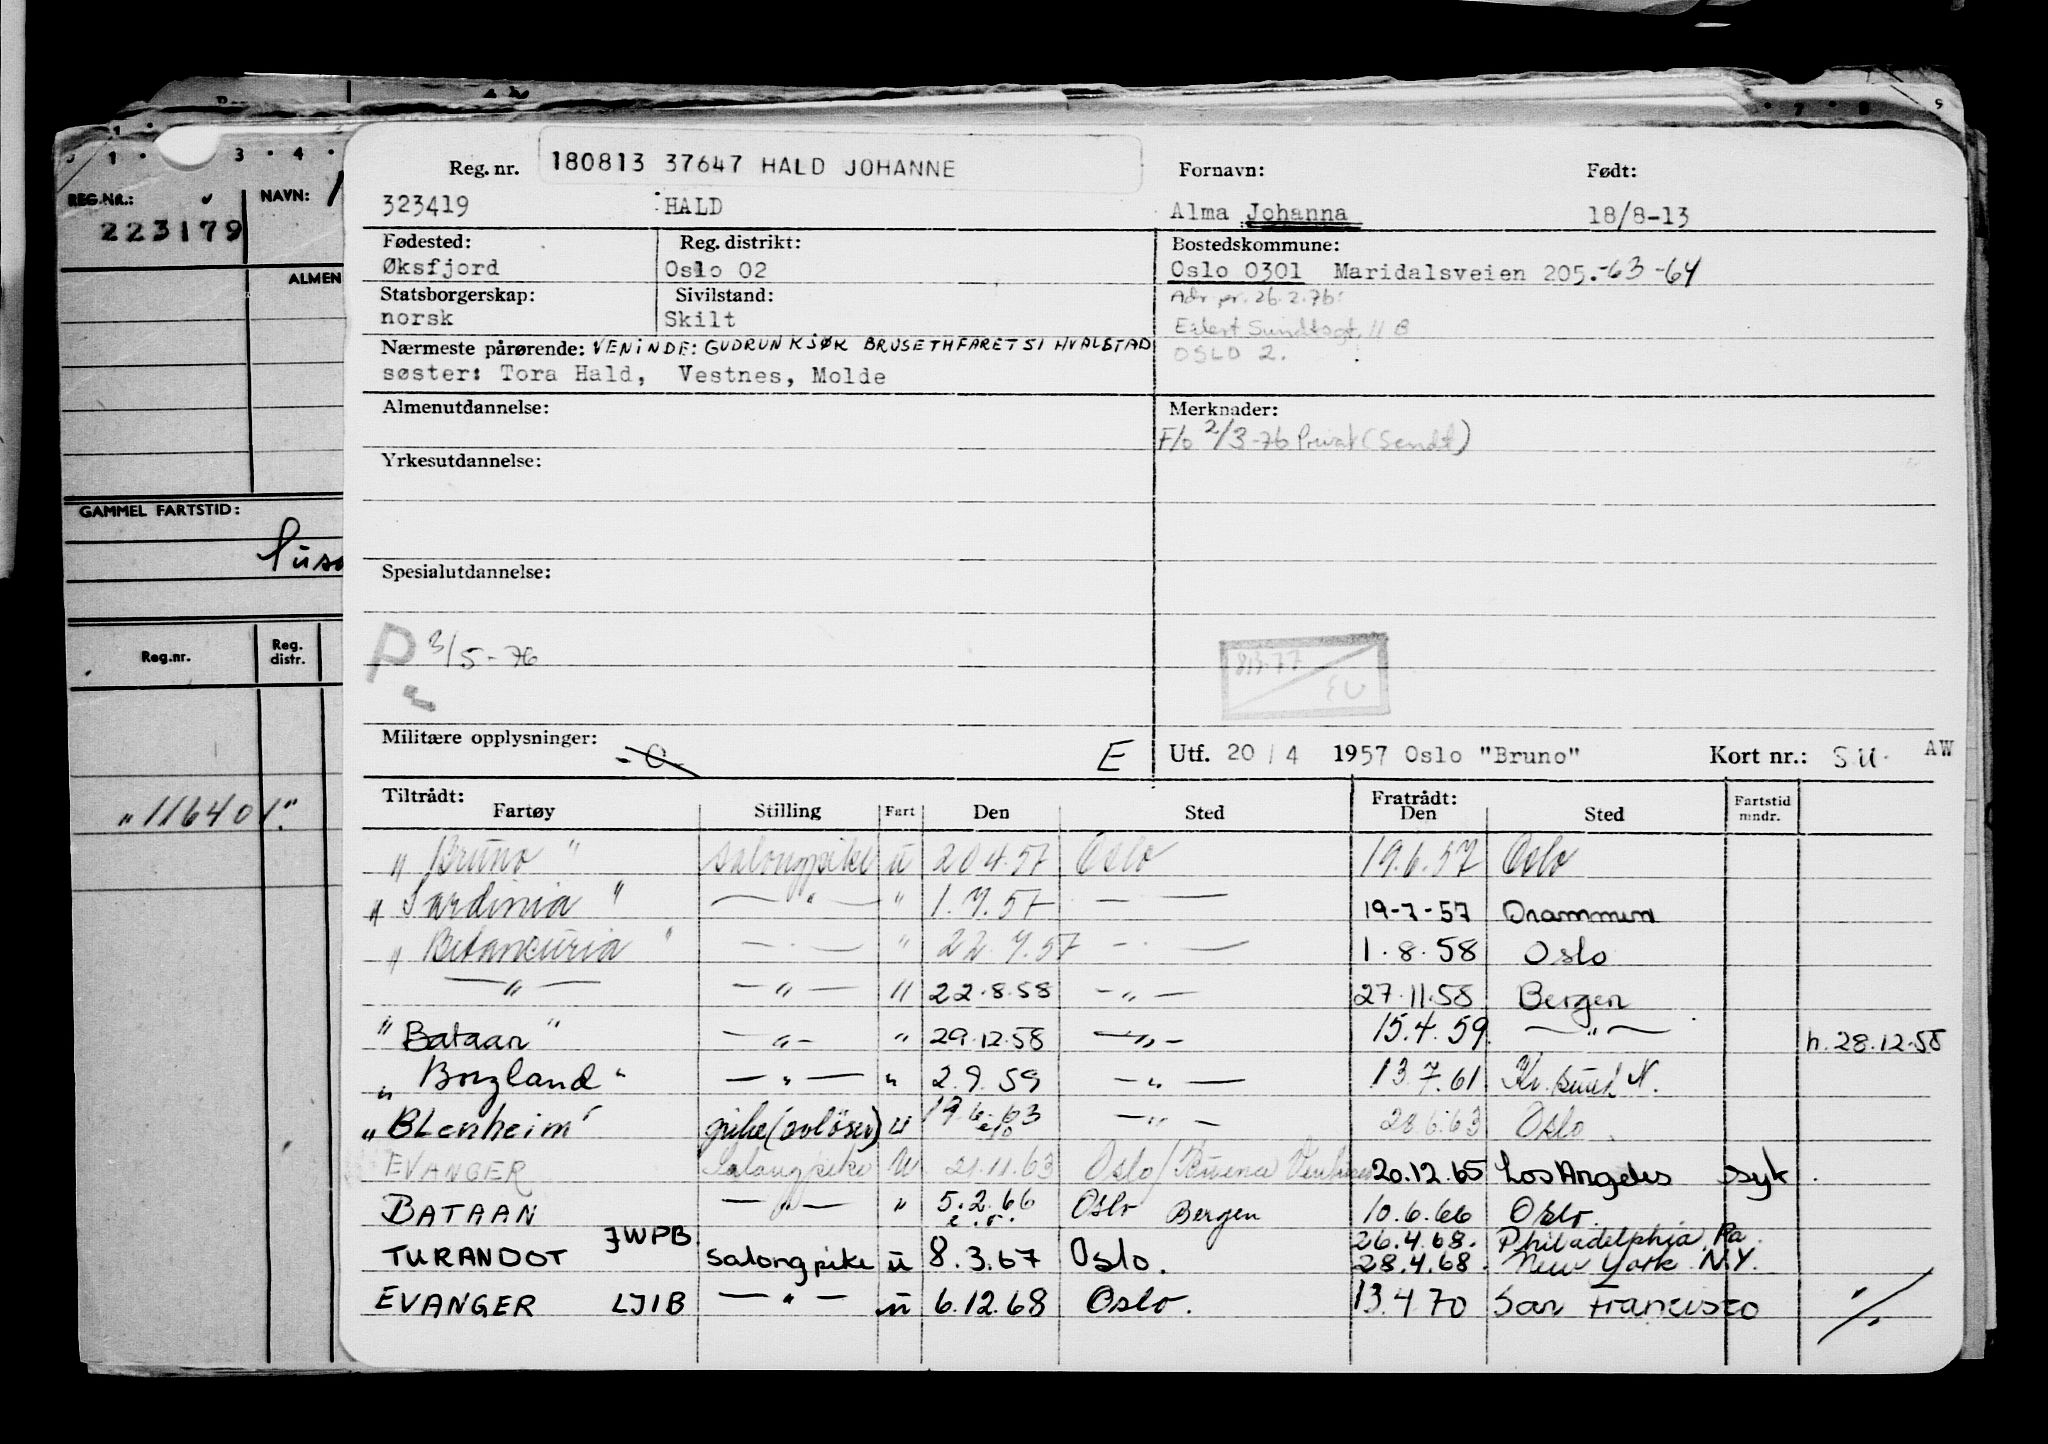 1 · 3 · 4 · 7 · 8 9
REG.NR.: NAVN:
223179
ALMEN
GAMMEL FARTSTID:
Reg.nr. Reg. distr.
"116401."
Reg. nr. 180813 37647 HALD JOHANNE Fornavn: Født:
323419 HALD Alma Johanna 18/8-13
Fødested: Reg. distrikt: Bostedskommune:
Øksfjord Oslo 02 Oslo 0301 Maridalsveien 205.-63-64
Statsborgerskap: Sivilstand: Adr. pr. 26.2.76:
norsk Skilt Eilert Sundtsgt. 11 B
Nærmeste pårørende: VENINDE: GUDRUN KJØK BRUSETHFARET 51 HVALSTAD OSLO 2.
søster: Tora Hald, Vestnes, Molde
Almenutdannelse: Merknader:
F/o 2/3-76 Privat (Sendt)
Yrkesutdannelse:
Spesialutdannelse:
P 3/5-76
8.3.77 EU
Militære opplysninger: -0- E Utf. 20/4 1957 Oslo "Bruno" Kort nr.: S.U. AW
Tiltrådt: Fratrådt:
Fartøy Stilling Fart Den Sted Den Sted Fartstid mndr.
"Bruno" salongpike u 20.4.57 Oslo 19.6.57 Oslo
"Sardinia" — " — " 1.7.57 — — 19-7-57 Drammen
"Betancuria" — " — " 22.7.57 — " — 1.8.58 Oslo
— " — — " — " 22.8.58 — " — 27.11.58 Bergen
"Bataan" — " — " 29.12.58 — " — 15.4.59 — " — h. 28.12.58
"Borgland" — " — " 2.9.59 — " — 13.7.61 Kr.sund N.
"Blenheim" pike (avløser) u 19.6.63 e/o — " — 28.6.63 Oslo
EVANGER Salongpike U 21.11.63 Oslo / Buena Ventura 20.12.65 Los Angeles syk.
BATAAN — " — " 5.2.66 e.o. Oslo Bergen 10.6.66 Oslo.
26.4.68. Philadelphia, Pa.
TURANDOT JWPB salongpike u 8.3.67 Oslo. 28.4.68. New York N.Y.
EVANGER LJIB — " — u 6.12.68 Oslo. 13.4.70 San Francisco ./.